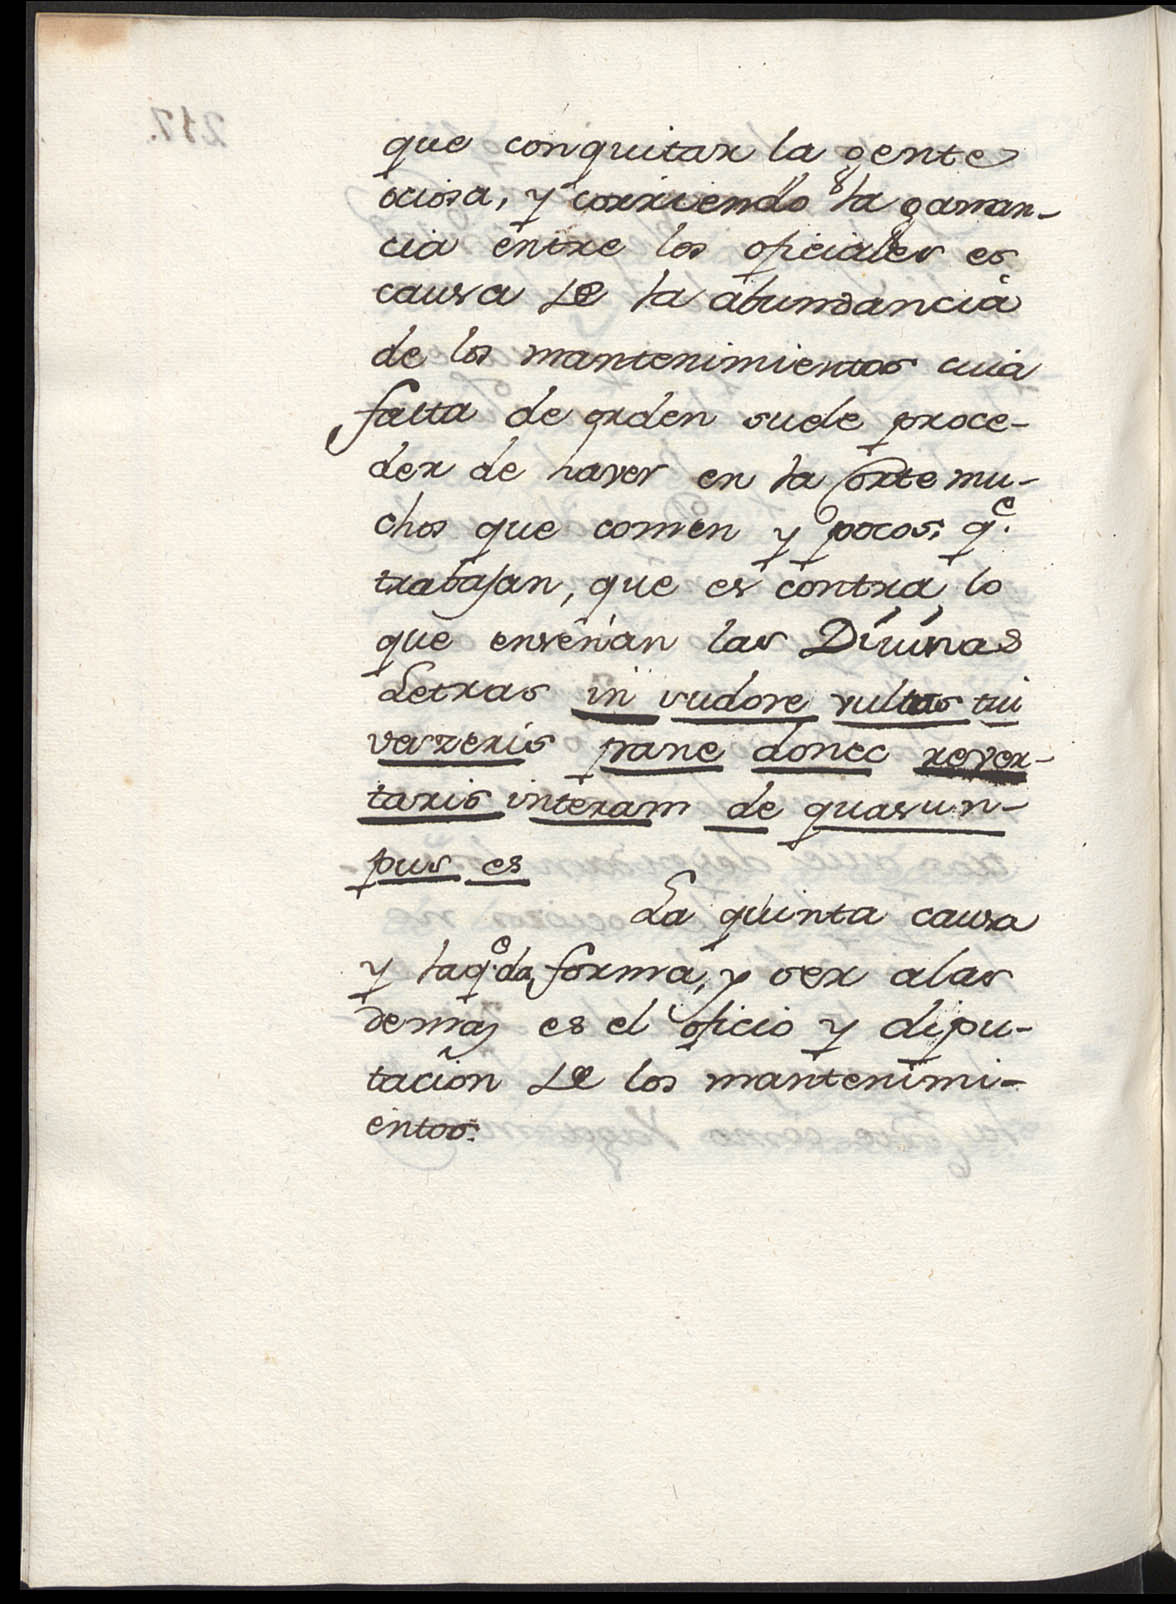 que conquitar la gente
ociosa, y corriendo la ganan-
cia entre los oficiales es
causa de la abundancia
de los mantenimientos cuia
falta de orden suele proce-
der de haver en la Corte mu-
chos que comen y pocos; q.e
trabajan, que es contra lo
que enseñan las Diuinas
Letras in sudore vultus tui
vesreris pane donec rever-
taris interam de qua sun-
pus es
La quinta causa
y la q.e da forma, y ser a las
demas es el oficio y dipu-
tación de los mantenimi-
entos.
217.